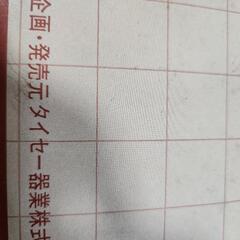 企画・発売元 タイセー器業株式